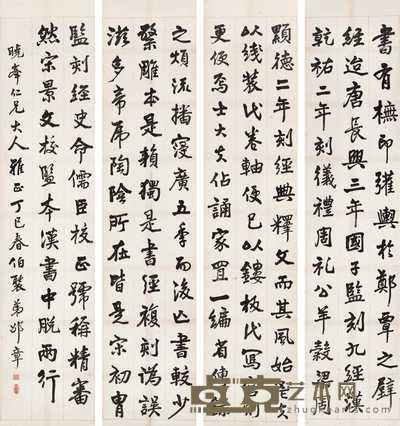 書有橅印權輿於鄭覃之壁
經迨唐長興三年國子監刻九經漢
乾祐二年刻儀禮周禮公羊穀梁周
顯德二年刻經典釋文而其風始大
以綫裝代卷軸便已以鏤板代寫則
更便焉士大夫佔誦家置一編省傳錄
之煩流播寖廣五季而後以書較少
槧雕本是賴獨是書經複刻譌誤
滋多帝虎陶陰所在皆是宋初冑
監刻經史命儒臣校正號稱精審
然宋景文校監本漢書中脫兩行
曉峯仁兄大人雅正丁巳春伯褧弟邵章
艺术网